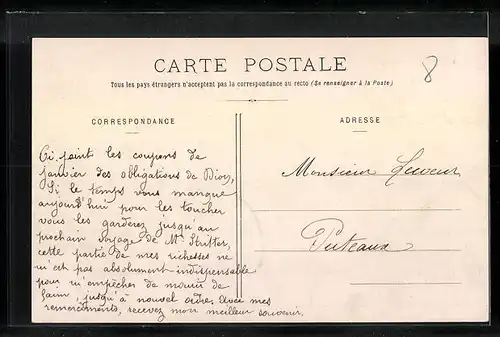 CARTE POSTALE
Tous les pays étrangers n'acceptent pas la correspondance au recto (Se renseigner à la Poste)
8
CORRESPONDANCE
Ci-joint les coupons de
janvier des obligations de
Si le temps vous manque
aujourd'hui pour les toucher
vous les garderez jusqu'au
prochain voyage de Mr
cette partie de mes richesses ne
m'est pas absolument indispensable
pour m'empêcher de mourir de
faim, jusqu'à nouvel ordre. Avec mes
remerciements, recevez mon meilleur souvenir.
ADRESSE
Monsieur
Puteaux